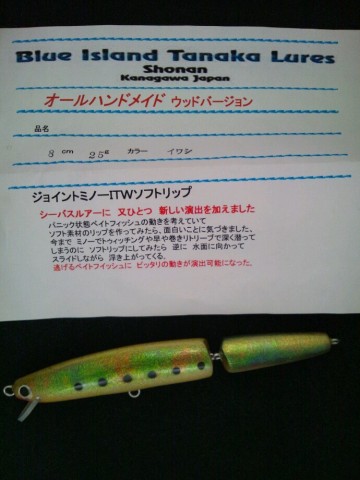 Blue Island Tanaka Lures
Shonan
Kanagawa Japan
オールハンドメイド ウッドバージョン
品名
8 cm 25g カラー イワシ
ジョイントミノーITWソフトリップ
シーバスルアーに 又ひとつ 新しい演出を加えました
パニック状態ベイトフィッシュの動きを考えていて
ソフト素材のリップを作ってみたら、面白いことに気づきました。
今まで ミノーでトゥィッチングや早や巻きリトリーブで深く潜って
しまうのに ソフトリップにしてみたら 逆に 水面に向かって
スライドしながら 浮き上がってくる。
逃げるベイトフィッシュに ピッタリの動きが演出可能になった。